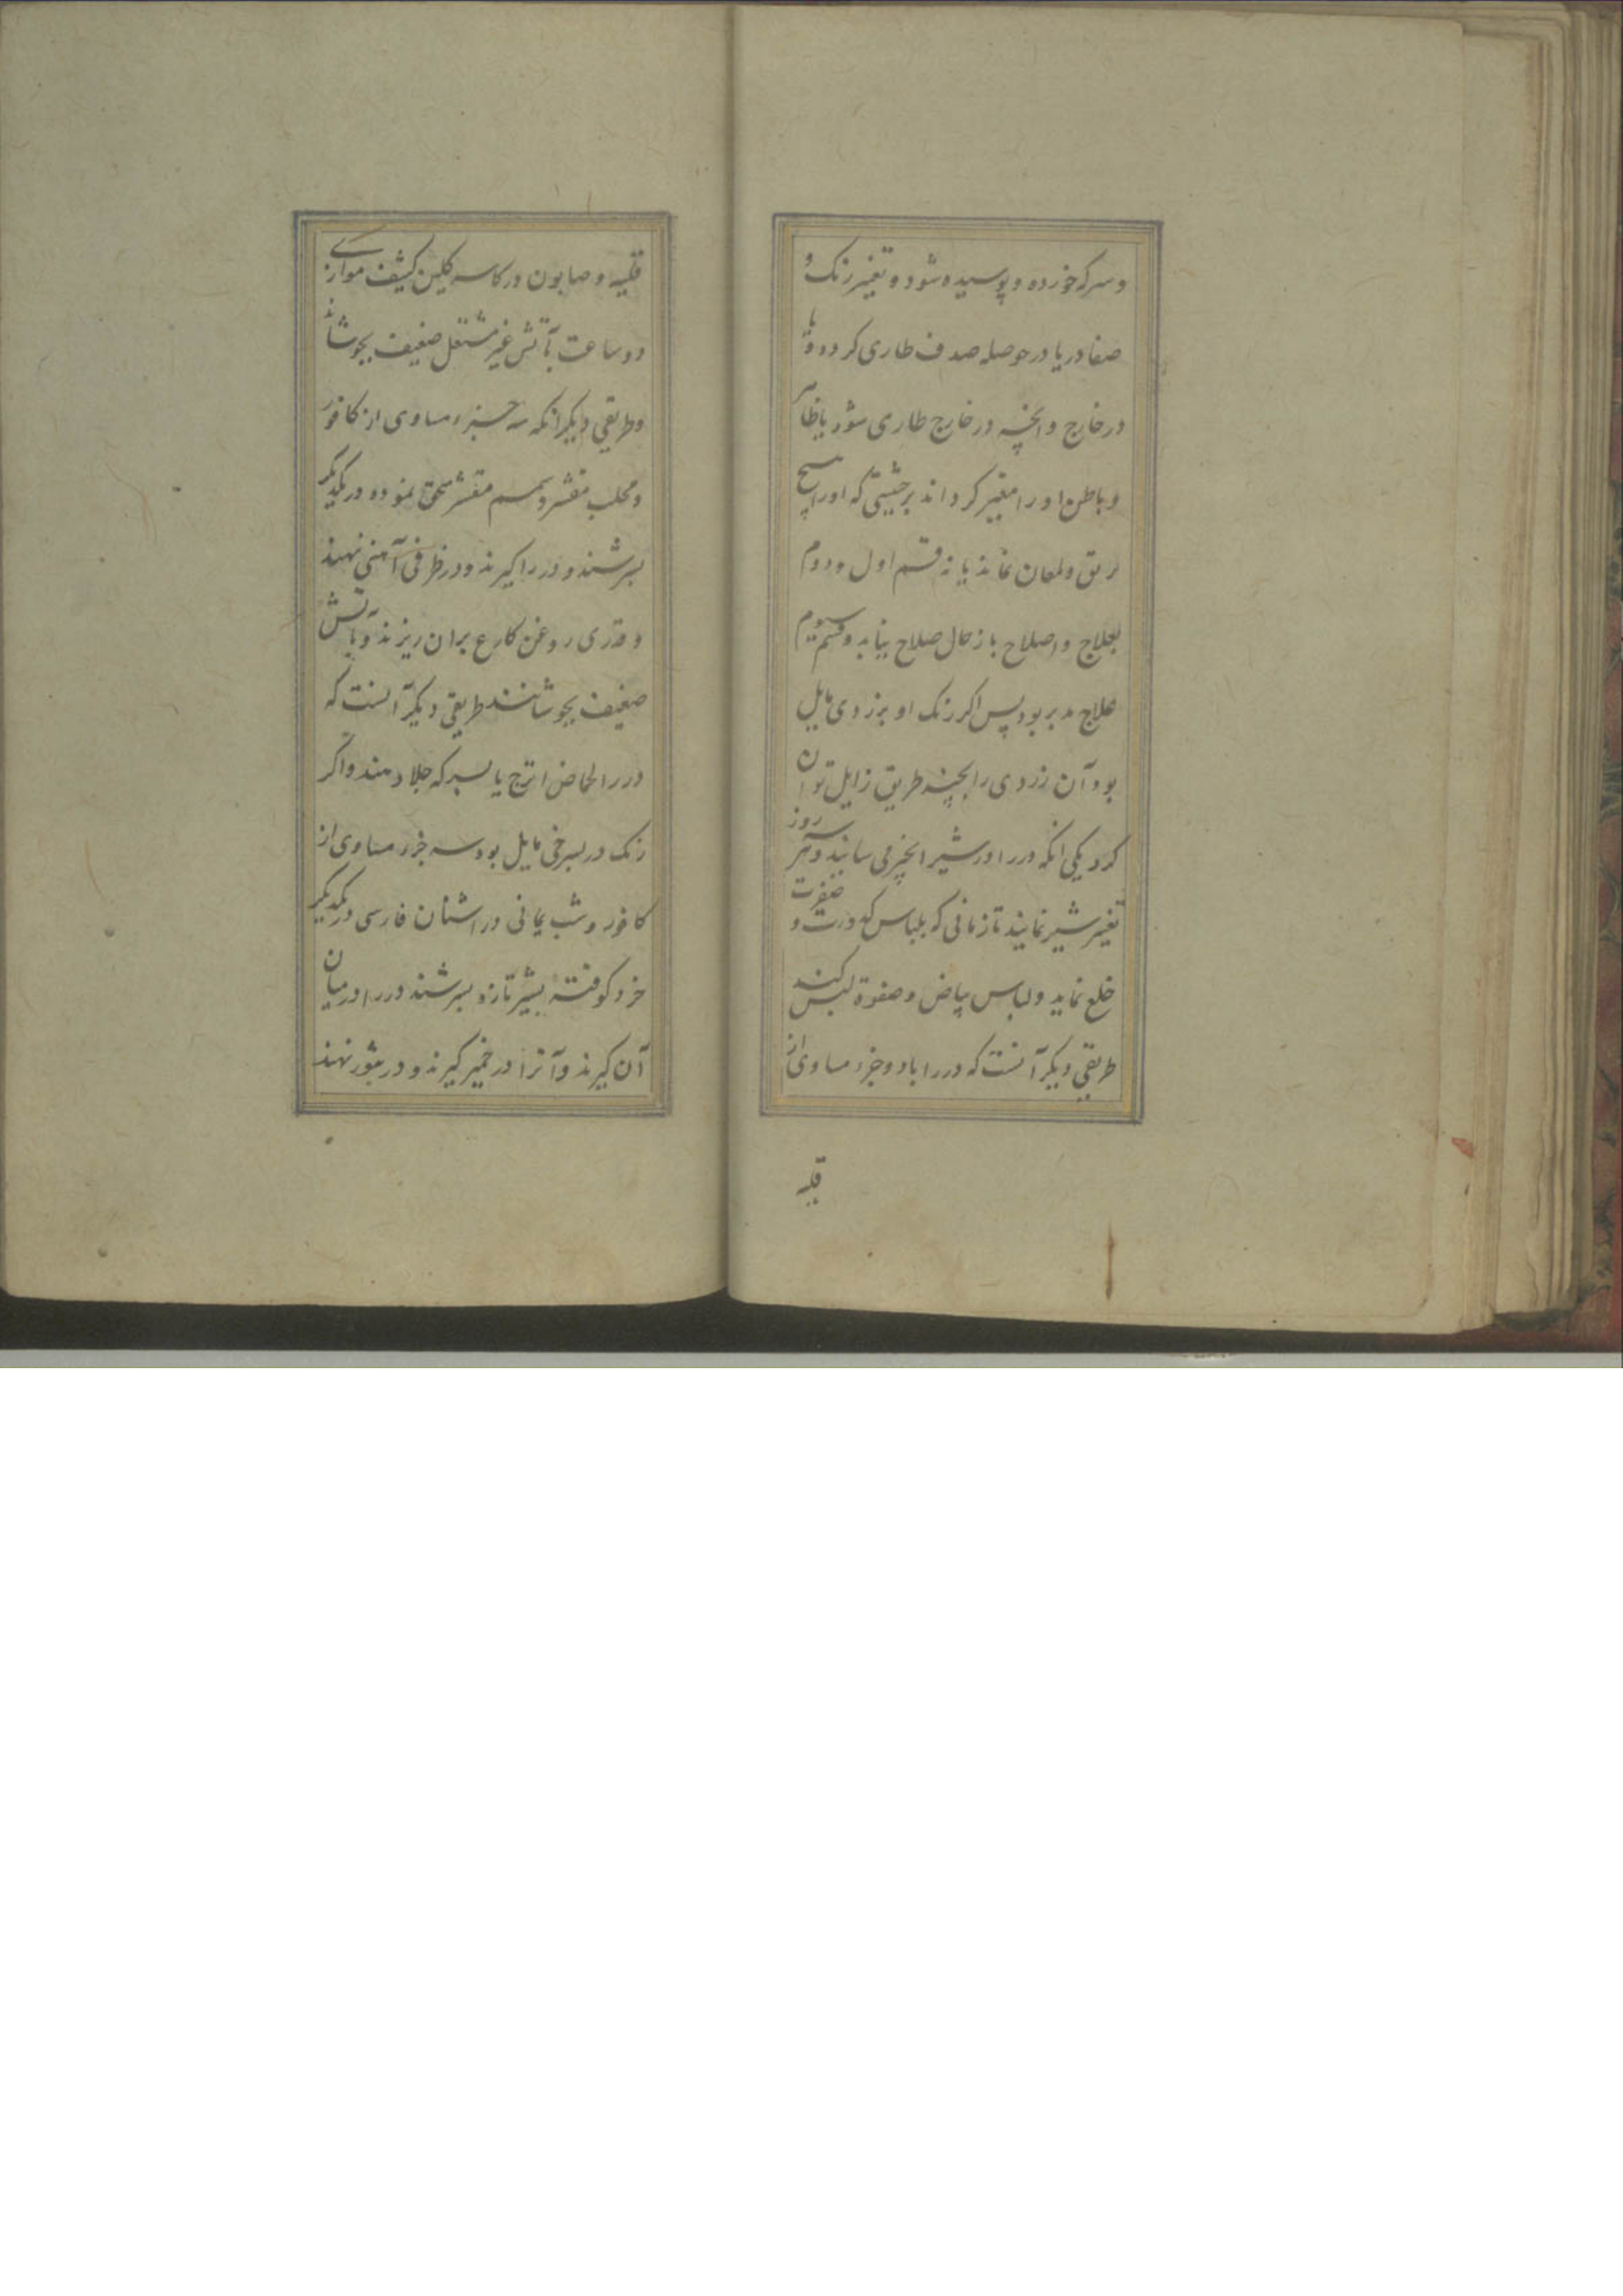 و سرکه خورده و پوسیده شود و تغیر رنک و
صفا در یا در حوصله صدف طاری کردد یا
در خارج و انچه در خارج طاری شود یا ظاهر
و باطن او را متغیر کرداند بر حیثیتی که او را هیچ
بریق و لمعان نماند یا نه قسم اول و دوم
بعلاج و اصلاح باز حال صلاح نیاید و قسم سیوم
علاج پذیر بود پس اکر رنک او بزردی مایل
بود آن زردی را بچند طریق زایل توان
کرد یکی انکه در را در شیر انجیر می سایند و هر سه روز
تغییر شیر نمایند تا زمانی که لباس کدورت و صفرت
خلع نماید و لباس بیاض و صفوة لبس کند
طریقی دیکر آنست که در را با دو جزء مساوی از
قلیه
قلیه و صابون در کاسه کلین کثیف موازی
دو ساعت بآتش غیر مشتعل ضعیف بجوشانند
و طریقی دیکر انکه سه جزء مساوی از کافور
و محلب مقشر و سمسم مقشر سحق نموده در یکدیکر
بسرشند و در را کیرند و در ظرفی آهنی نهند
و قدری روغن کارع بران ریزند و بآتش
ضعیف بجوشانند طریقی دیکر آنست که
در را بحماض اترج یا بسرکه جلا دهند و اکر
رنک در بسرخی مایل بود سه جزء مساوی از
کافور و شب یمانی و اشنان فارسی در یکدیکر
خرد کوفته بشیر تازه بسرشند در را در میان
آن کیرند و آنرا در خمیر کیرند و در تنور نهند